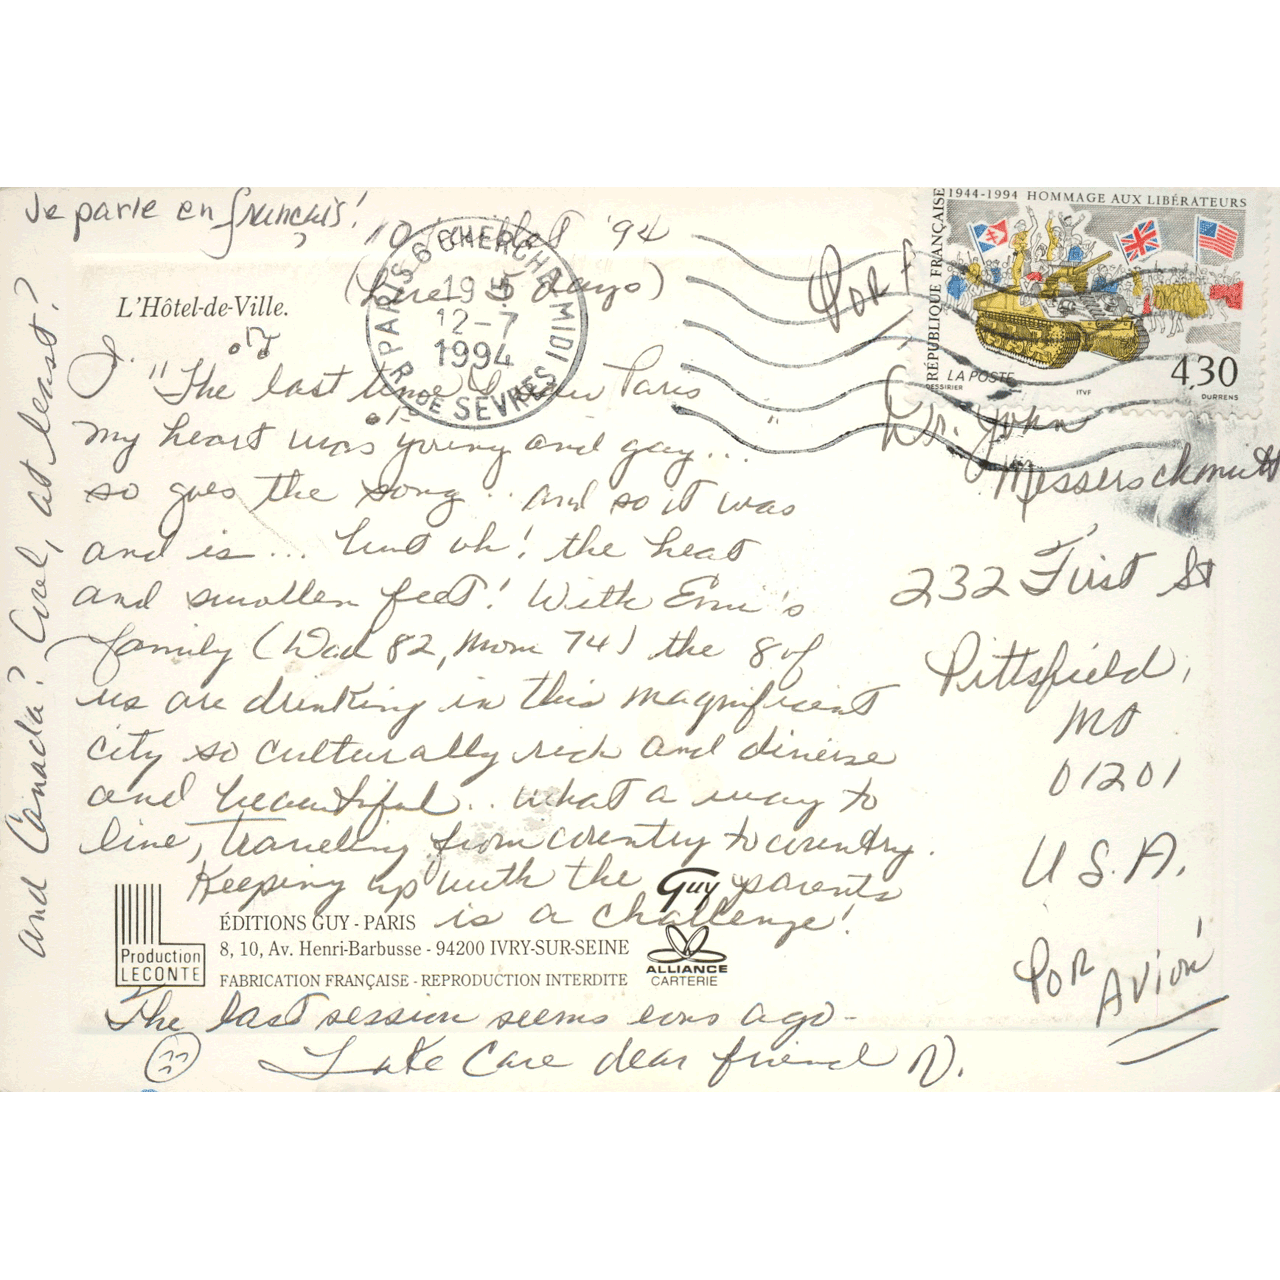 Je parle en français!
10 Juillet '94
(here 5 days)
L'Hôtel-de-Ville.
"The last time I saw Paris
my heart was young and gay..."
so goes the song... and so it was
and is... but oh! the heat
and swollen feet! With Erni's
family (Dad 82, Mom 74) the 8 of
us are drinking in this magnificent
city so culturally rich and diverse
and beautiful... what a way to
live, traveling from country to country.
Keeping up with the parents
is a challenge!
The last session seems eons ago-
Take Care dear friend N.
and Canada? Cool, at least?
PARIS 6 CHERCHE MIDI
R DE SÈVRES
19H
12-7
1994
1944-1994 HOMMAGE AUX LIBÉRATEURS
RÉPUBLIQUE FRANÇAISE
LA POSTE
4,30
DESSIRIER
ITVF
DURRENS
Dr. John
Messerschmitt
232 First St
Pittsfield,
MA
01201
U.S.A.
POR
AVION
Production
LECONTE
ÉDITIONS GUY - PARIS
8, 10, Av. Henri-Barbusse - 94200 IVRY-SUR-SEINE
FABRICATION FRANÇAISE - REPRODUCTION INTERDITE
Guy
ALLIANCE
CARTERIE